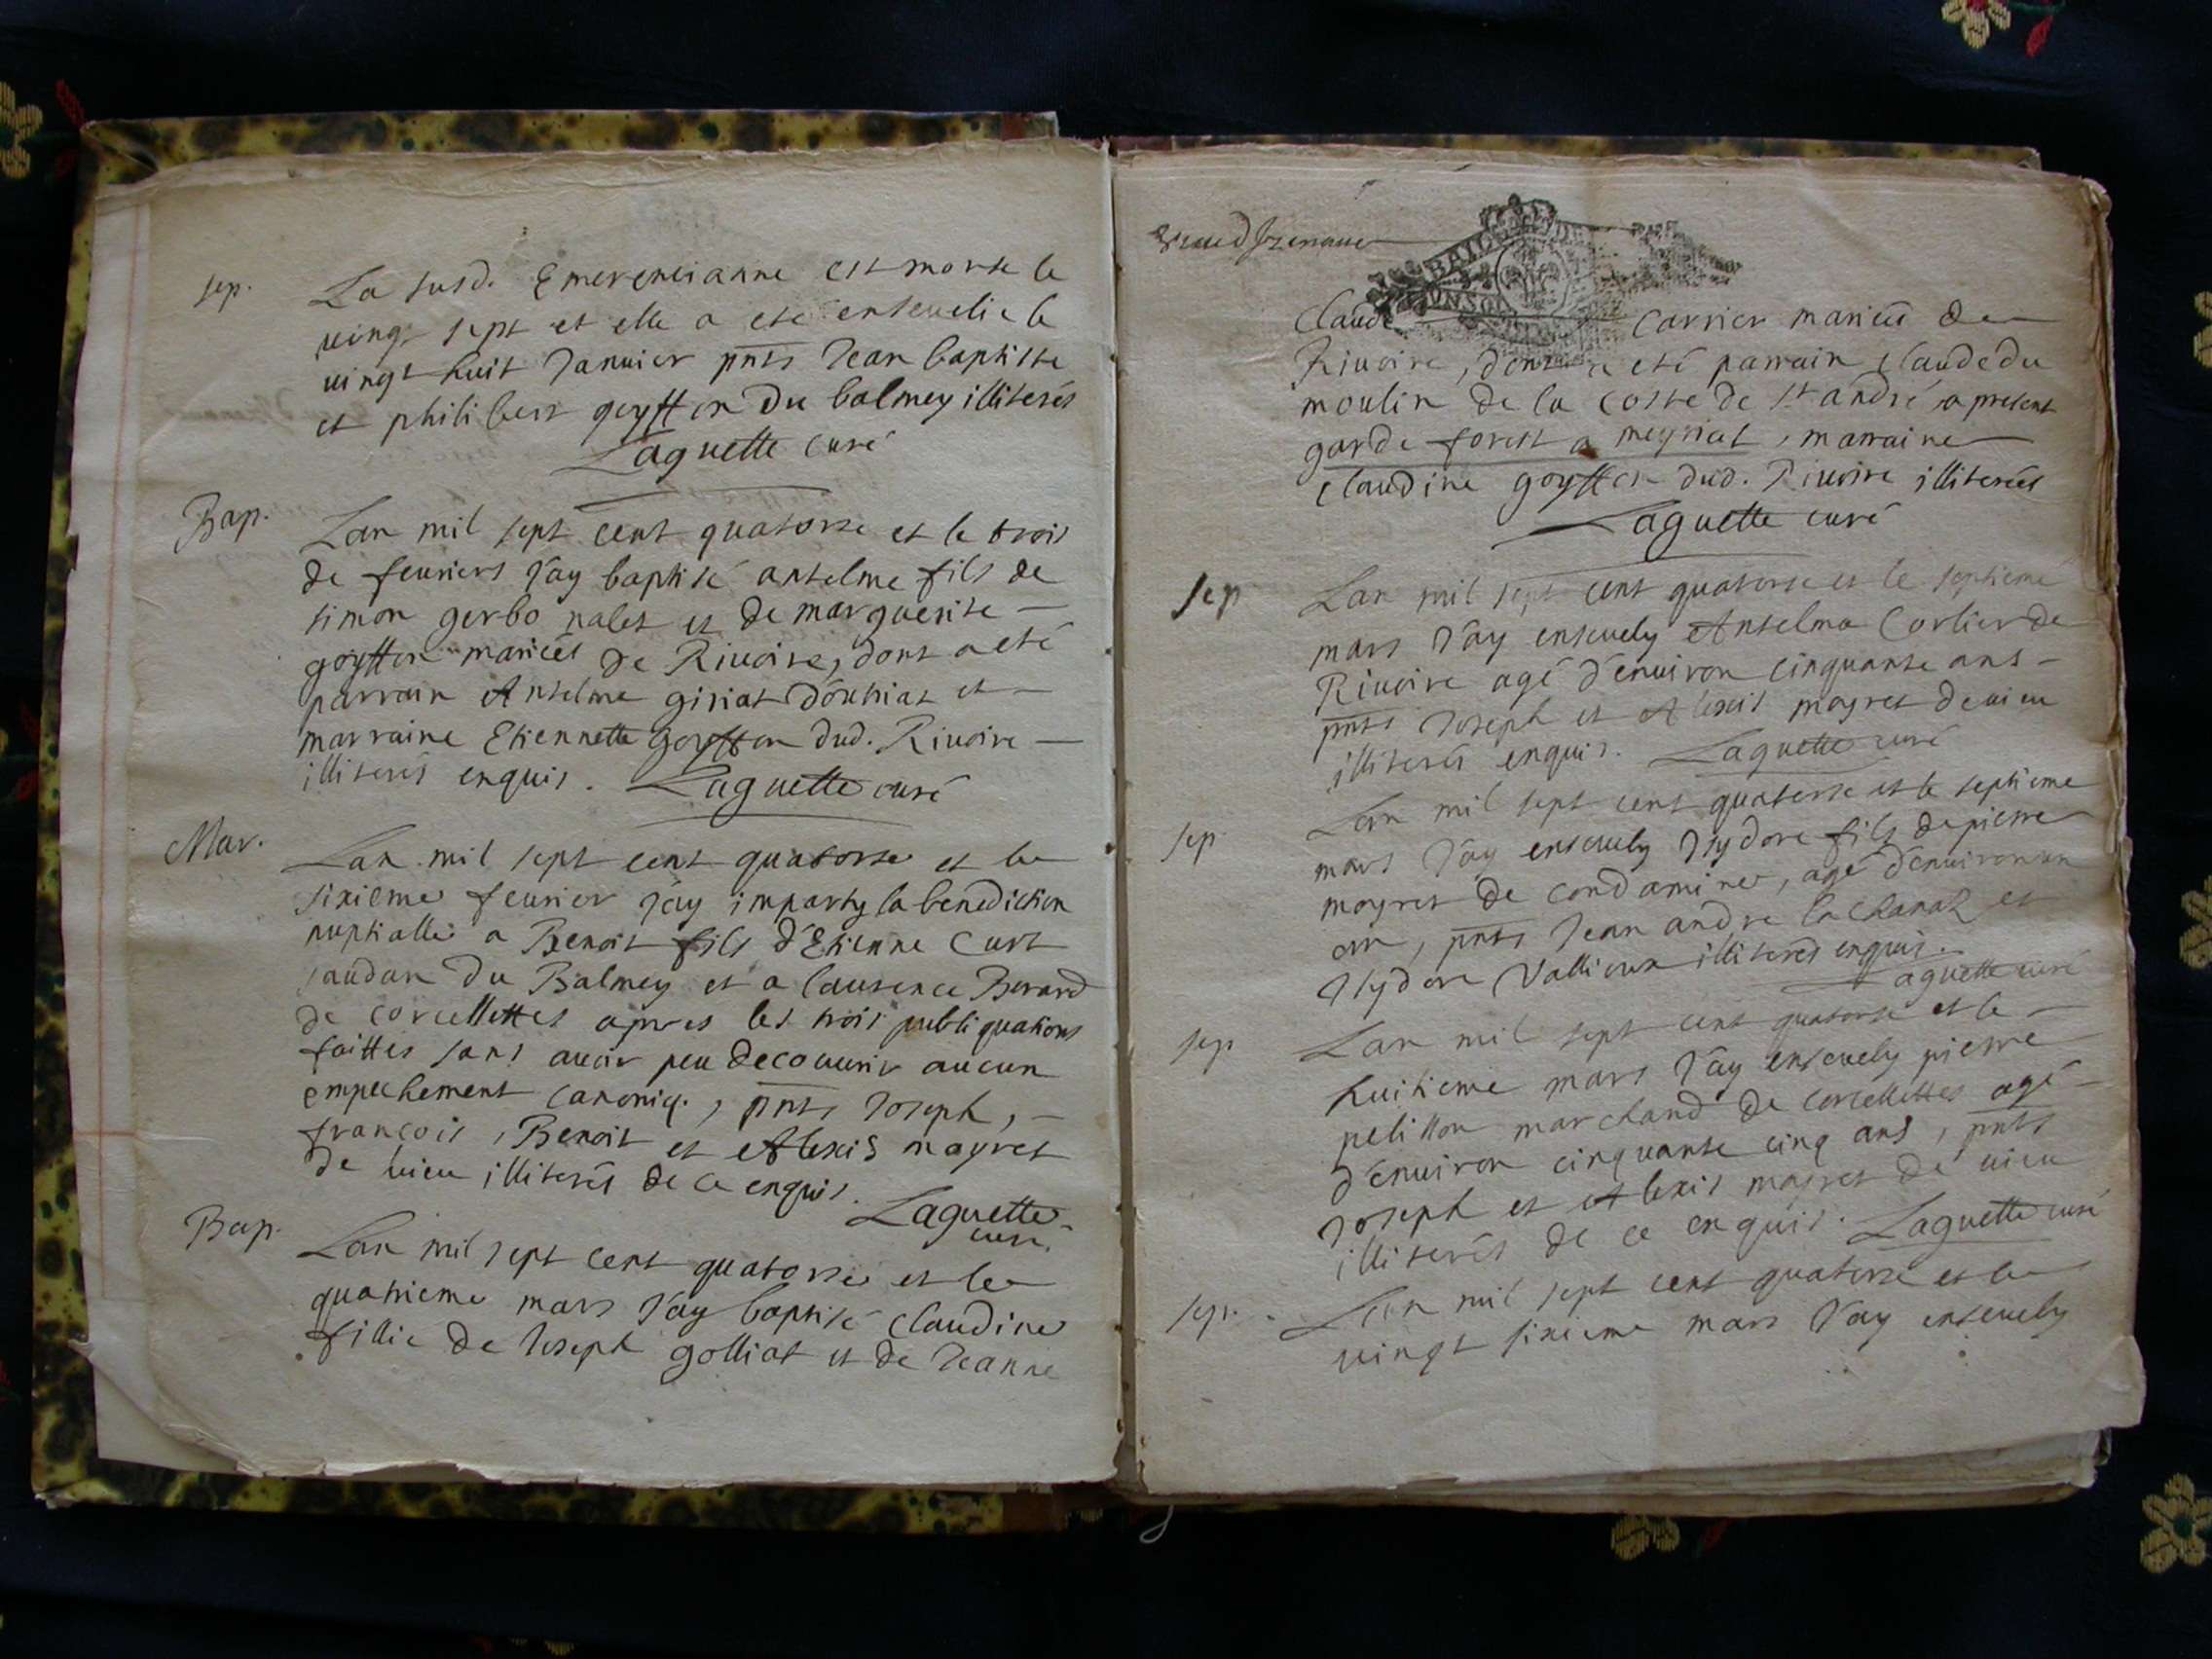 sep.
La susd. Emerentianne est morte le
vingt sept et elle a eté ensevelie le
vingt huit Janvier pnts Jean baptiste
et philibert goyffon Du balmey illiterés
Laguette curé
Bap.
Lan mil sept cent quatorse et le trois
de feuriers J'ay baptisé anselme fils de
simon gerbo nalet et de marguerite
goyffon mariés de Rivoire, dont a eté
parrain Anselme giriat d'outriat et
marraine Etiennette goyffon dud. Rivoire
illiterés enquis. Laguette curé
Mar.
Lan mil sept cent quatorse et le
sixieme feurier J'ay imparty la benediction
nuptialle a Benoit fils d'Etienne Curt
du Balmey et a laurence Berard
de corcellettes apres les trois publiquations
faittes sans avoir peu decouurir aucun
empechement canoniq., pnts Joseph,
francois, Benoit et Alexis mayret
de vieu illiterés de ce enquis.
Laguette
curé
Bap.
Lan mil sept cent quatorse et le
quatrieme mars J'ay baptisé Claudine
fillie de Joseph golliat et de Jeanne
BAIL
Claude Carrier mariés de
Rivoire, dont a eté parrain Claude du
moulin de la coste de st andré a present
garde forest a meyriat, marraine
Claudine goyffon dud. Rivoire illiterés
Laguette curé
sep
Lan mil sept cent quatorse et le septieme
mars J'ay ensevely Anselme Corlier de
Rivoire agé d'enuiron cinquante ans
pnts Joseph et Alexis mayret de vieu
illiterés enquis. Laguette curé
sep
Lan mil sept cent quatorse et le septieme
mars J'ay ensevely Isydore fils de pierre
mayret de condamine, agé d'enuiron un
an, pnts Jean andre la chanaz et
Isydore Vallioux illiterés enquis.
Laguette curé
sep
Lan mil sept cent quatorse et le
huitieme mars J'ay ensevely pierre
pelisson marchand de corcellettes agé
d'enuiron cinquante cinq ans, pnts
Joseph et Alexis mayret de vieu
illiterés de ce enquis. Laguette curé
sep.
Lan mil sept cent quatorse et le
vingt sixieme mars J'ay ensevely